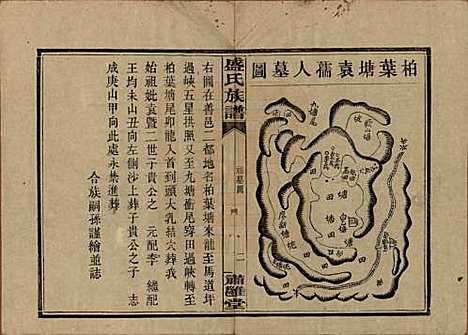 柏葉塘袁孺人墓圖
九塘尾
塘
田
田
田
塘
田
盛氏族譜
墓圖
二
肅雝堂
右圖在善邑二都地名柏葉塘來龍至馬道坪
過峽五星拱照又出九塘衝尾穿田過峽轉至
柏葉塘尾卯龍入首到頭大乳結穴葬我
始祖妣袁暨二世子貴公之 元配李 繼配
王均未山丑向左側沙上葬子貴公之子 志
成庚山甲向此永禁進葬
合族嗣孫謹繪並誌